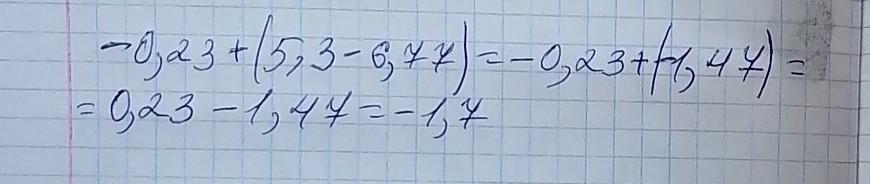 -0,23+(5,3-6,77)=-0,23+(-1,47)=
=0,23-1,47=-1,7